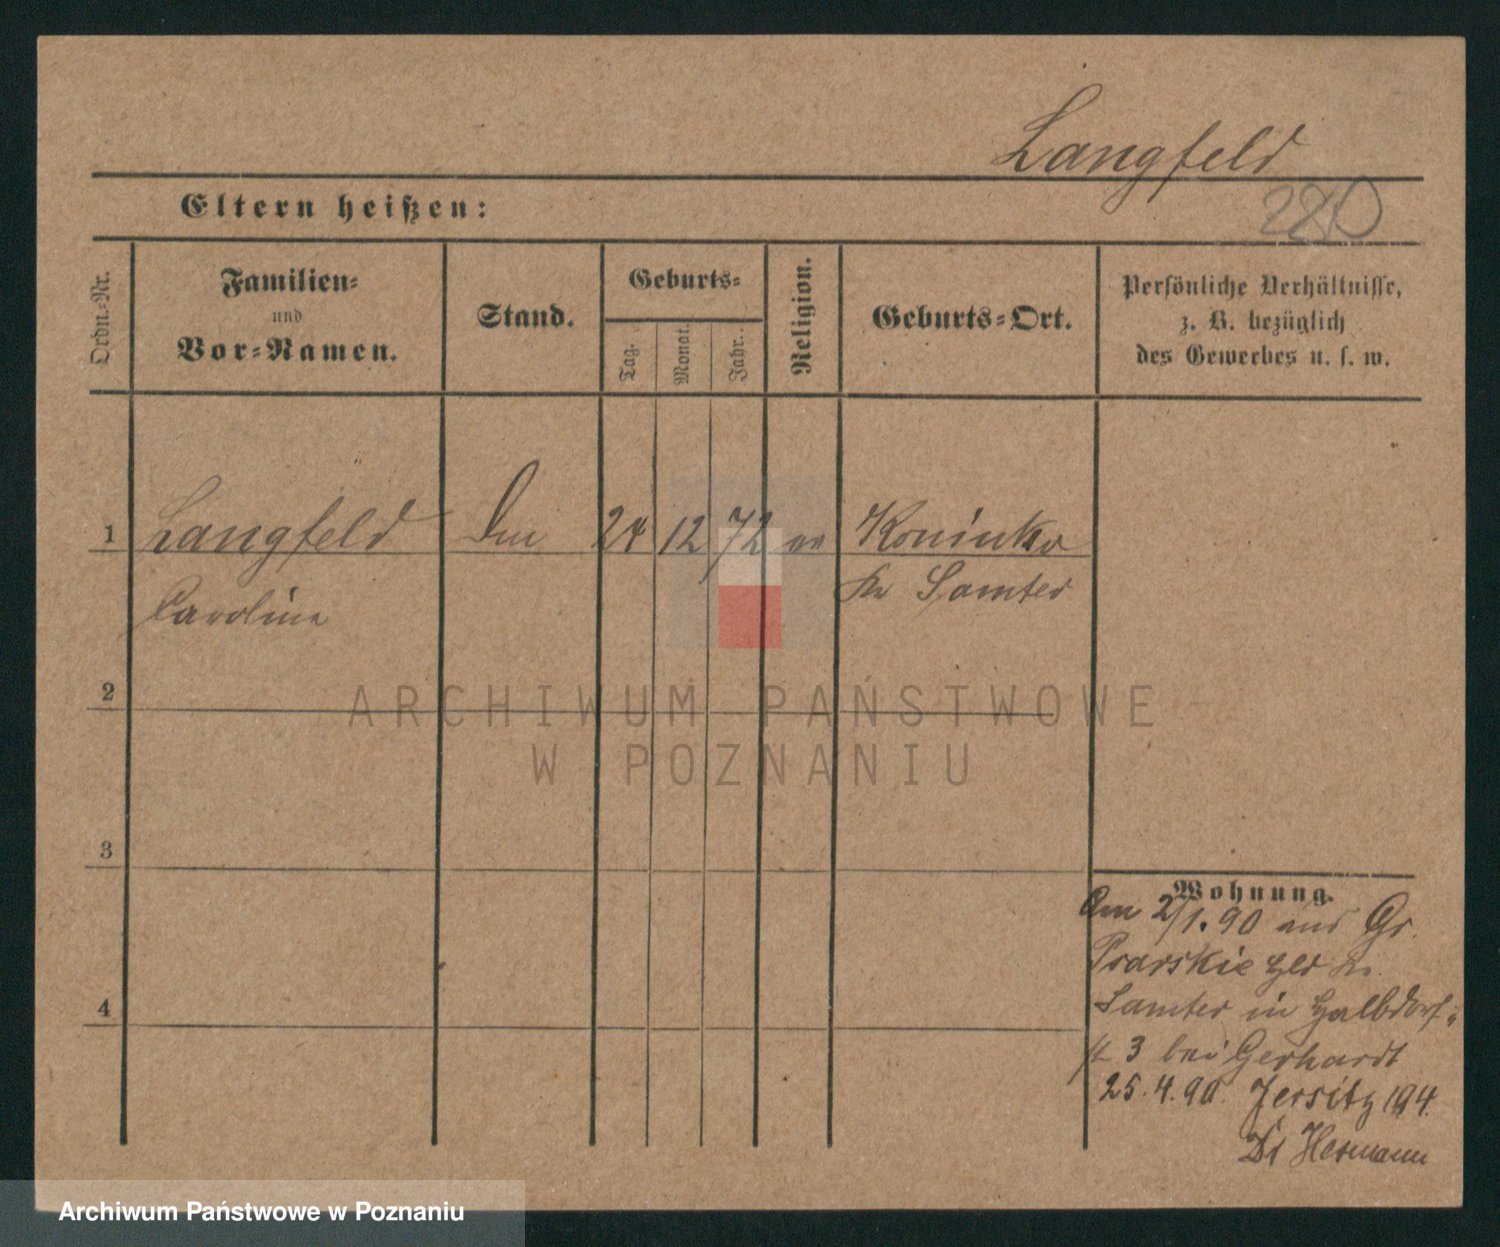 Langfeld
280
Eltern heißen:
Ordn.-Nr.
Familien-
und
Vor-Namen.
Stand.
Geburts-
Tag.
Monat.
Jahr.
Religion.
Geburts-Ort.
Persönliche Verhältnisse,
z. B. bezüglich
des Gewerbes u. s. w.
1 Langfeld 24 12 72 Koninko
Caroline Kr Samter
2
3
4
Wohnung.
Am 2/1. 90 aus Gr.
Psarskie Kr.
Samter in Halbdorf-
st 3 bei Gerhardt
25. 4. 90. Jersitz 194.
Dr Hermann
ARCHIWUM PAŃSTWOWE
W POZNANIU
Archiwum Państwowe w Poznaniu